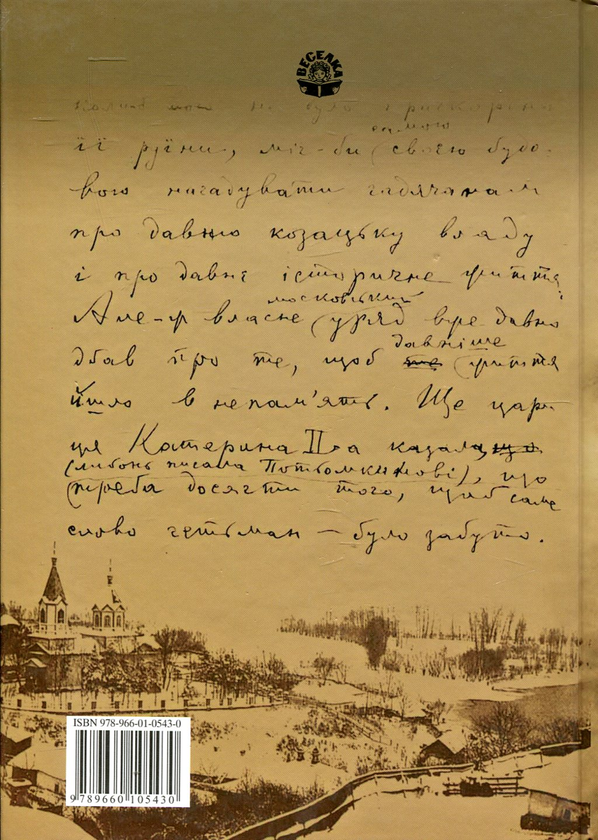 ВЕСЕЛКА
не було прискорено
самою
її руїни, міг-би (своєю будо-
вою нагадувати гадячанам
про давню козацьку владу
і про давнє історичне життя.
московський
Але-ж власне (уряд вже давно
давніше
дбав про те, щоб (життя
йшло в непам'ять. Ще цари-
ця Катерина II-а казала, що
(либонь писала Потьомкинові), що
(треба досягти того, щоб саме
слово гетьман – було забуто.
ISBN 978-966-01-0543-0
9 789660 105430